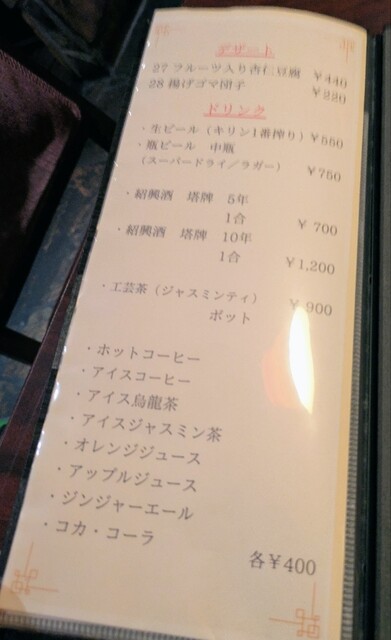 デザート
27 フルーツ入り杏仁豆腐 ¥440
28 揚げゴマ団子 ¥220
ドリンク
・生ビール（キリン1番搾り）¥550
・瓶ビール 中瓶
（スーパードライ／ラガー） ¥750
・紹興酒 塔牌 5年
1合 ¥ 700
・紹興酒 塔牌 10年
1合 ¥1,200
・工芸茶（ジャスミンティ） ¥ 900
ポット
・ホットコーヒー
・アイスコーヒー
・アイス烏龍茶
・アイスジャスミン茶
・オレンジジュース
・アップルジュース
・ジンジャーエール
・コカ・コーラ
各¥400